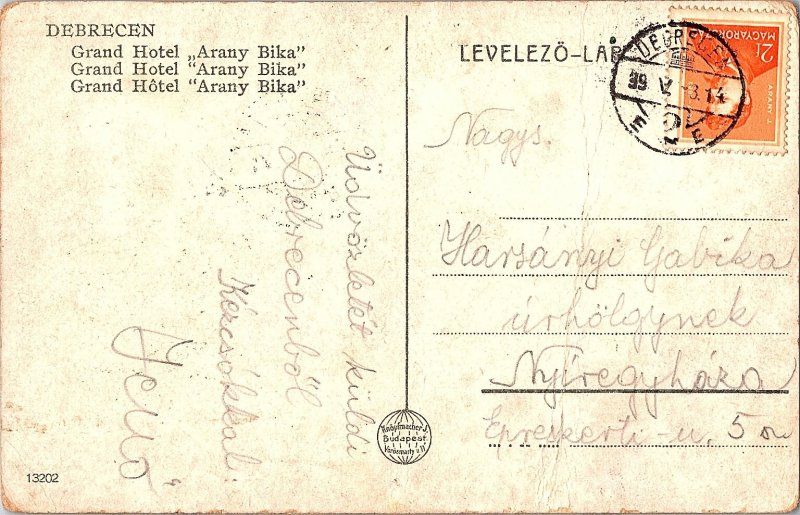 DEBRECEN
Grand Hotel „Arany Bika”
Grand Hotel “Arany Bika”
Grand Hôtel “Arany Bika”
Üdvözletét küldi
Debrecenből
Kézcsókkal:
Jenő
13202
Budapest
LEVELEZŐ-LAP
2f
MAGYARORSZ
ARANY J.
DEBRECEN
39 V -3.14
Nagys.
Harsányi Gabika
úrhölgynek
Nyíregyháza
Epreskerti-u. 5